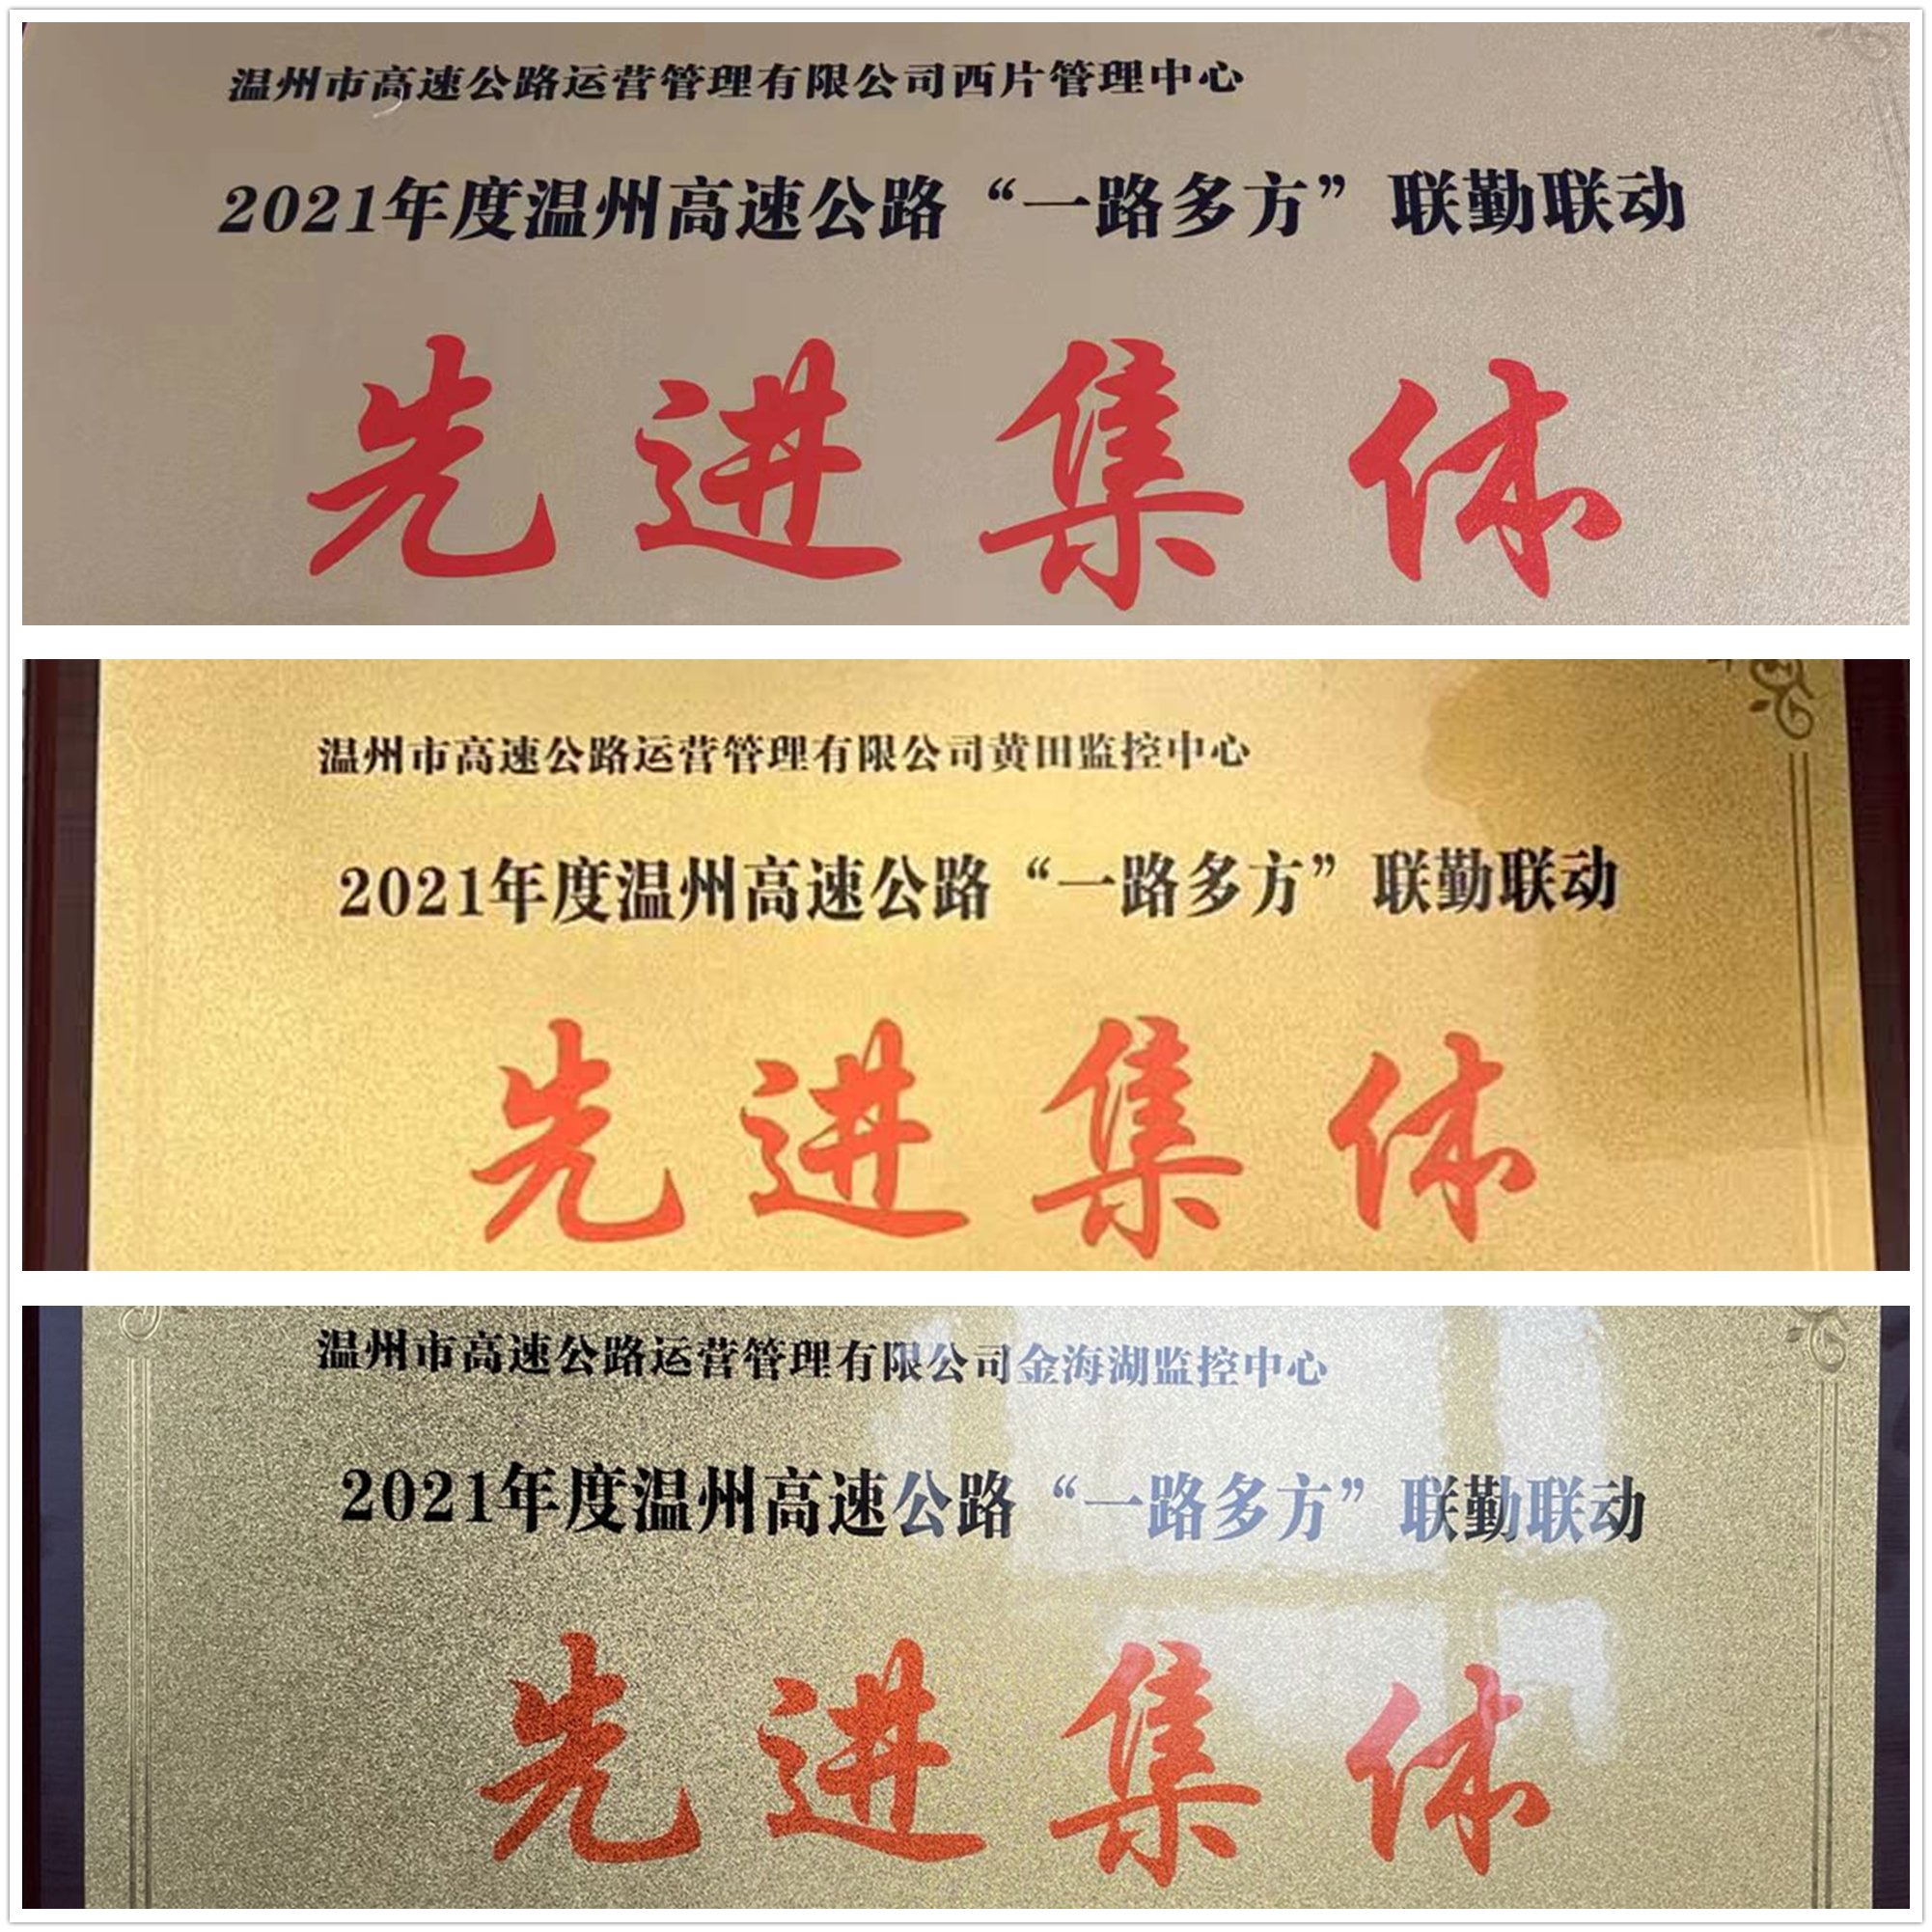 温州市高速公路运营管理有限公司西片管理中心
2021年度温州高速公路“一路多方”联勤联动
先进集体
温州市高速公路运营管理有限公司黄田监控中心
2021年度温州高速公路“一路多方”联勤联动
先进集体
温州市高速公路运营管理有限公司金海湖监控中心
2021年度温州高速公路“一路多方”联勤联动
先进集体